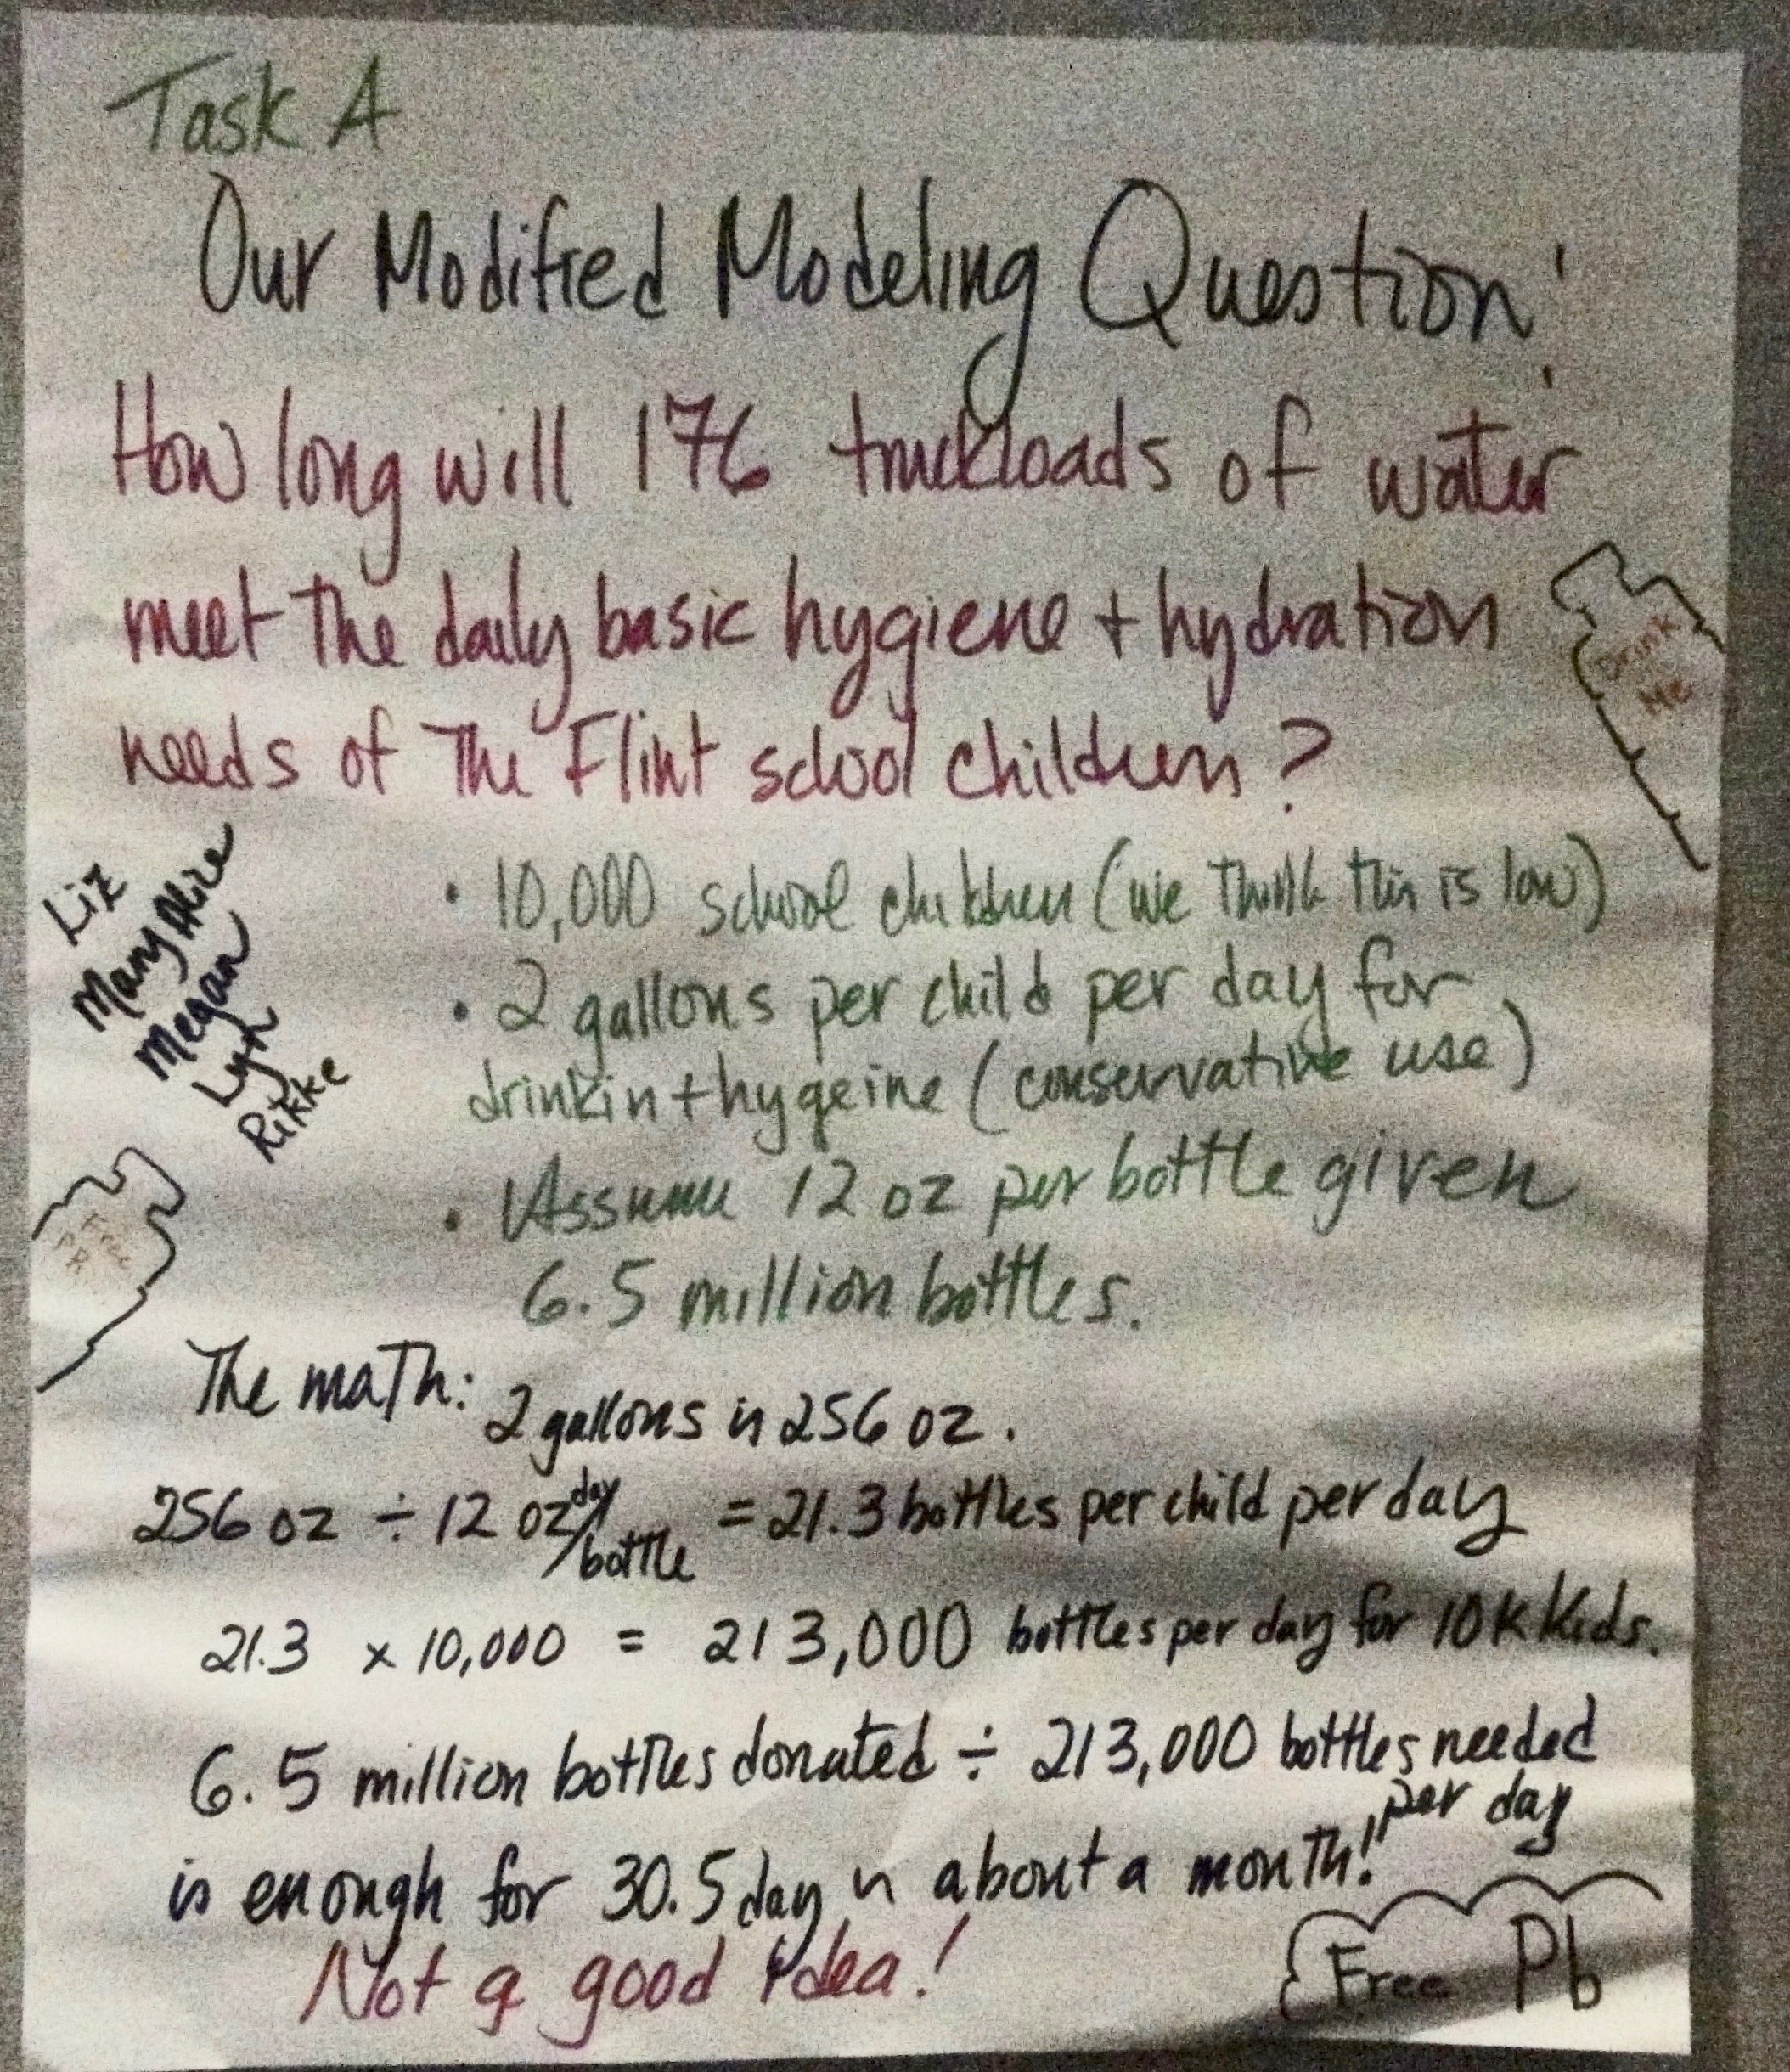 Task A
Our Modified Modeling Question!
How long will 176 truckloads of water
meet the daily basic hygiene + hydration
needs of the Flint school children?
Drink
Me
Liz
Mary Alice
Megan
Lyn
Rikke
• 10,000 school children (we think this is low)
• 2 gallons per child per day for
drinkin + hygeine (conservative use)
• Assume 12 oz per bottle given
6.5 million bottles.
Free
The math: 2 gallons is 256 oz.
256 oz ÷ 12 oz day/bottle = 21.3 bottles per child per day
21.3 x 10,000 = 213,000 bottles per day for 10K Kids.
6.5 million bottles donated ÷ 213,000 bottles needed
per day
is enough for 30.5 day about a month!
Not a good idea!
Free Pb